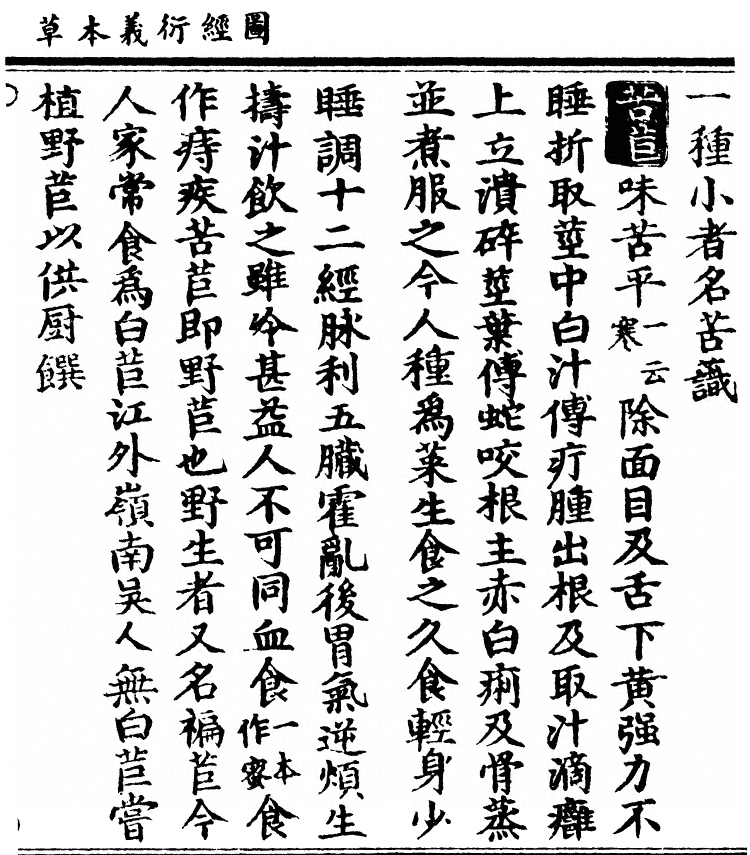 圖經衍義本草
一種小者名苦䕭
苦苣味苦平一云寒除面目及舌下黃强力不
睡折取莖中白汁傅疔腫出根及取汁滴癰
上立潰碎莖葉傅蛇咬根主赤白痢及骨蒸
並煮服之今人種爲菜生食之久食輕身少
睡調十二經脉利五臓霍亂後胃氣逆煩生
擣汁飲之雖冷甚益人不可同血食一本作蜜食
作痔疾苦苣即野苣也野生者又名褊苣今
人家常食爲白苣江外嶺南吳人無白苣嘗
植野苣以供厨饌